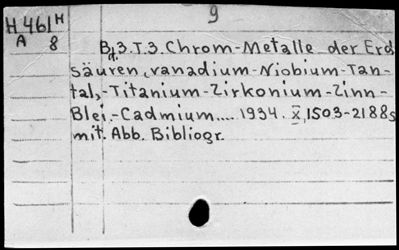 9
H 461 H
A 8
Bd. 3. T. 3. Chrom-Metalle der Erd
säuren, vanadium-Niobium-Tan-
tal,-Titanium-Zirkonium-Zinn-
Blei,-Cadmium.... 1934. X, 1503-2188s
mit. Abb. Bibliogr.